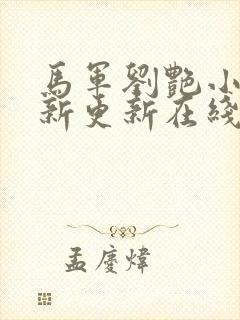 馬軍劉艷小
新更新在綫
孟慶煒